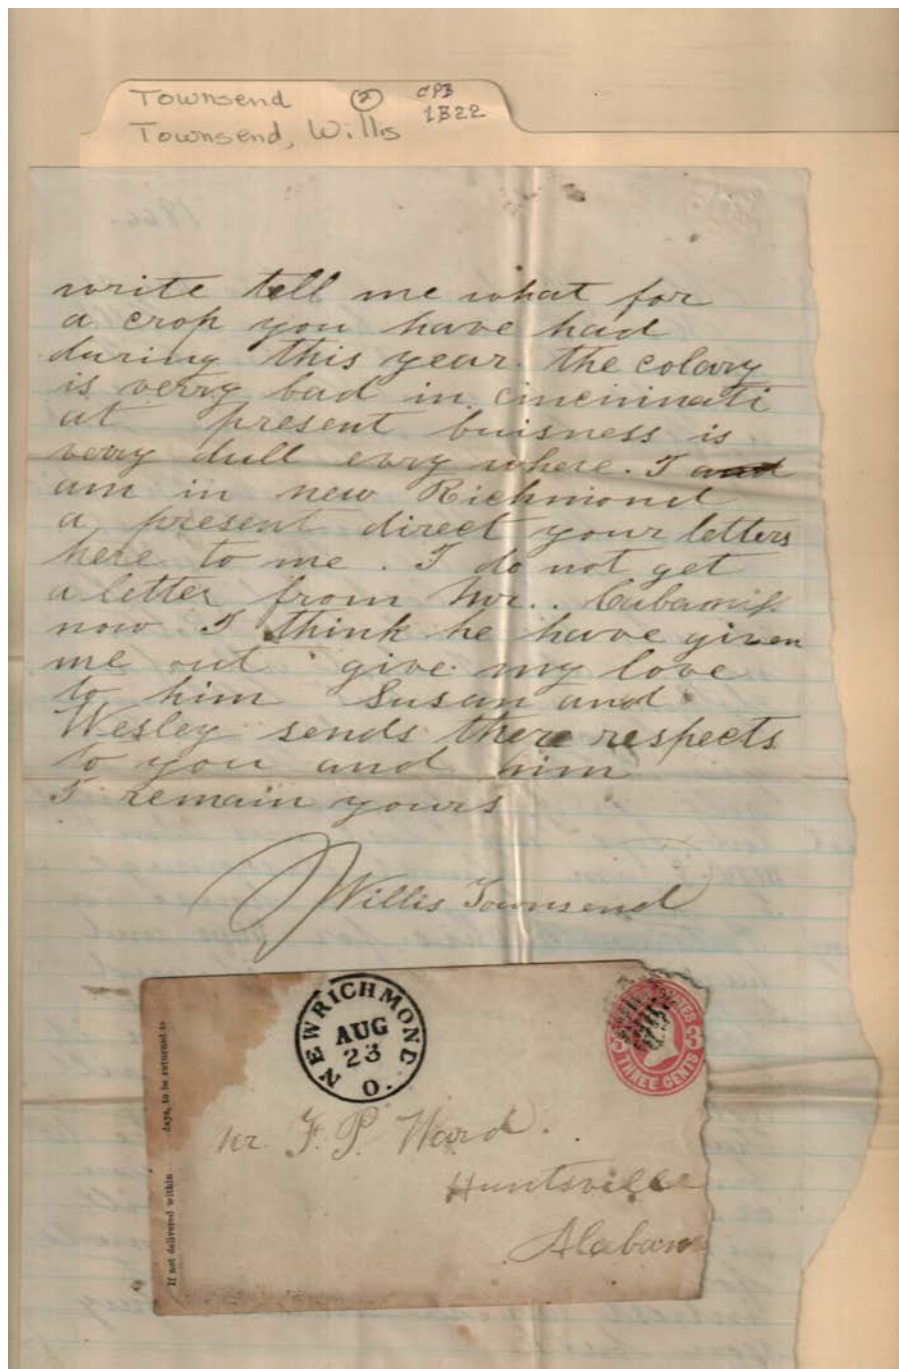 Townsend ② CPB
1B22
Townsend, Willis
write tell me what for
a crop you have had
during this year. the colary
is verry bad in cincinnati
at present buisness is
verry dull evry where. I and
am in new Richmond
a present direct your letters
here to me. I do not get
a letter from Mr..
now I think he have given
me out give my love
to him Susan and
Wesley sends there respects
to you and him
I remain yours
Willis Townsend
NEWRICHMOND O.
AUG
23
3 3
THREE CENTS
If not delivered within days, to be returned to
Mr. F. P. Ward.
Huntsville
Alabam